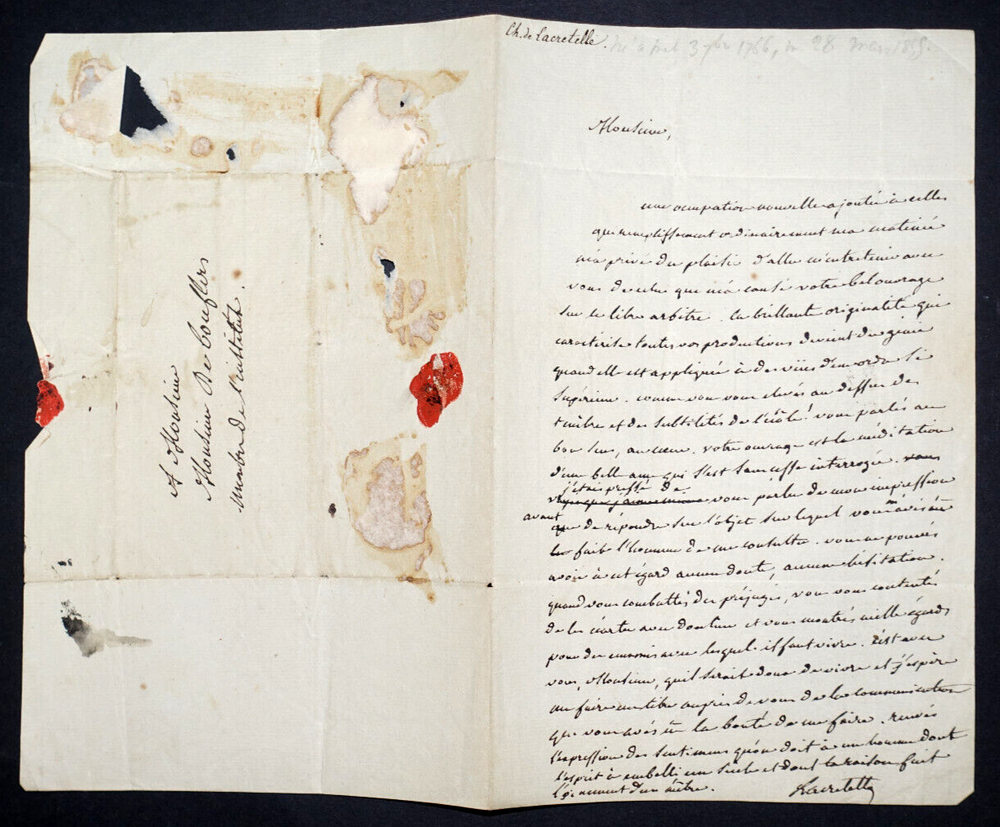 A Monsieur
Monsieur De Boufflers
membre de l'institut.
Ch. de Lacretelle.
né à 3 7bre 1766, m 28 mars 1855.
Monsieur,
une occupation nouvelle ajoutée à celles
qui remplissent ordinairement ma matinée
m'a privé du plaisir d'aller m'entretenir avec
vous de celui que m'a causé votre bel ouvrage
sur le libre arbitre. la brillante originalité qui
caractérise toutes vos productions devient du genie
quand elle est appliquée à des vües d'un ordre si
supérieur. comme vous vous elevés au dessus des
ténébres et des subtilités de l'école! vous parlés au
bon sens, au cœur. votre ouvrage est la méditation
d'une belle ame qui s'est sans cesse interrogée.
j'étais pressé de vous parler de mon impression
avant que de répondre sur l'objet sur lequel vous m'avés
fait l'honneur de me consulter. vous ne pouvés
avoir à cet égard aucun doute, aucune hésitation.
quand vous combattés des préjugés, vous vous contentés
de les écarter avec douceur et vous montrés mille égards
pour des ennemis avec lesquels il faut vivre. C'est avec
vous, Monsieur, qu'il serait doux de vivre et j'espère
me faire un titre auprès de vous de la communication
que vous avés eu la bonté de me faire. recevés
l'expression des sentimens qu'on doit à un homme dont
l'esprit a embelli un siècle et dont la raison fait
l'ornement d'un autre.
Lacretelle